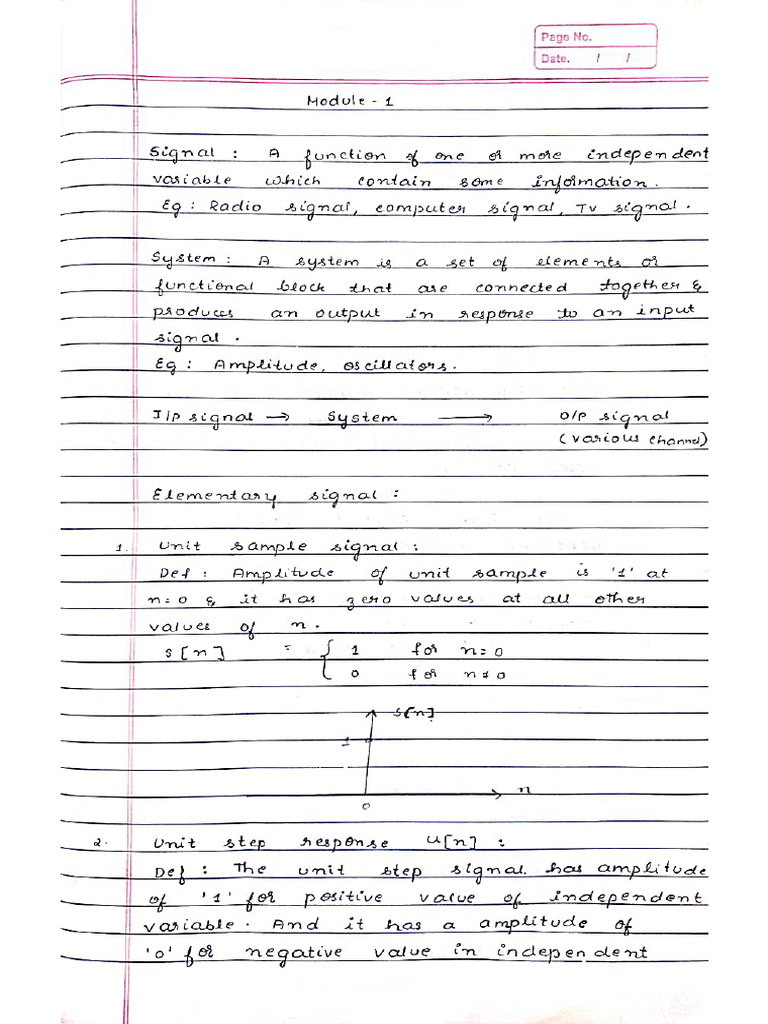 Page No.
Date. / /
Module - 1
Signal : A function of one or more independent
variable which contain some information.
Eg : Radio signal, computer signal, Tv signal.
System : A system is a set of elements or
functional block that are connected together &
produces an output in response to an input
signal.
Eg : Amplitude, oscillators.
I/p signal → System → O/p signal
(various channel)
Elementary signal :
1. Unit sample signal :
Def : Amplitude of unit sample is '1' at
n=0 & it has zero values at all other
values of n.
s[n] = { 1 for n=0
0 for n≠0
s[n]
1
n
0
2. Unit step response u[n] :
Def : The unit step signal has amplitude
of '1' for positive value of independent
variable. And it has a amplitude of
'0' for negative value in independent